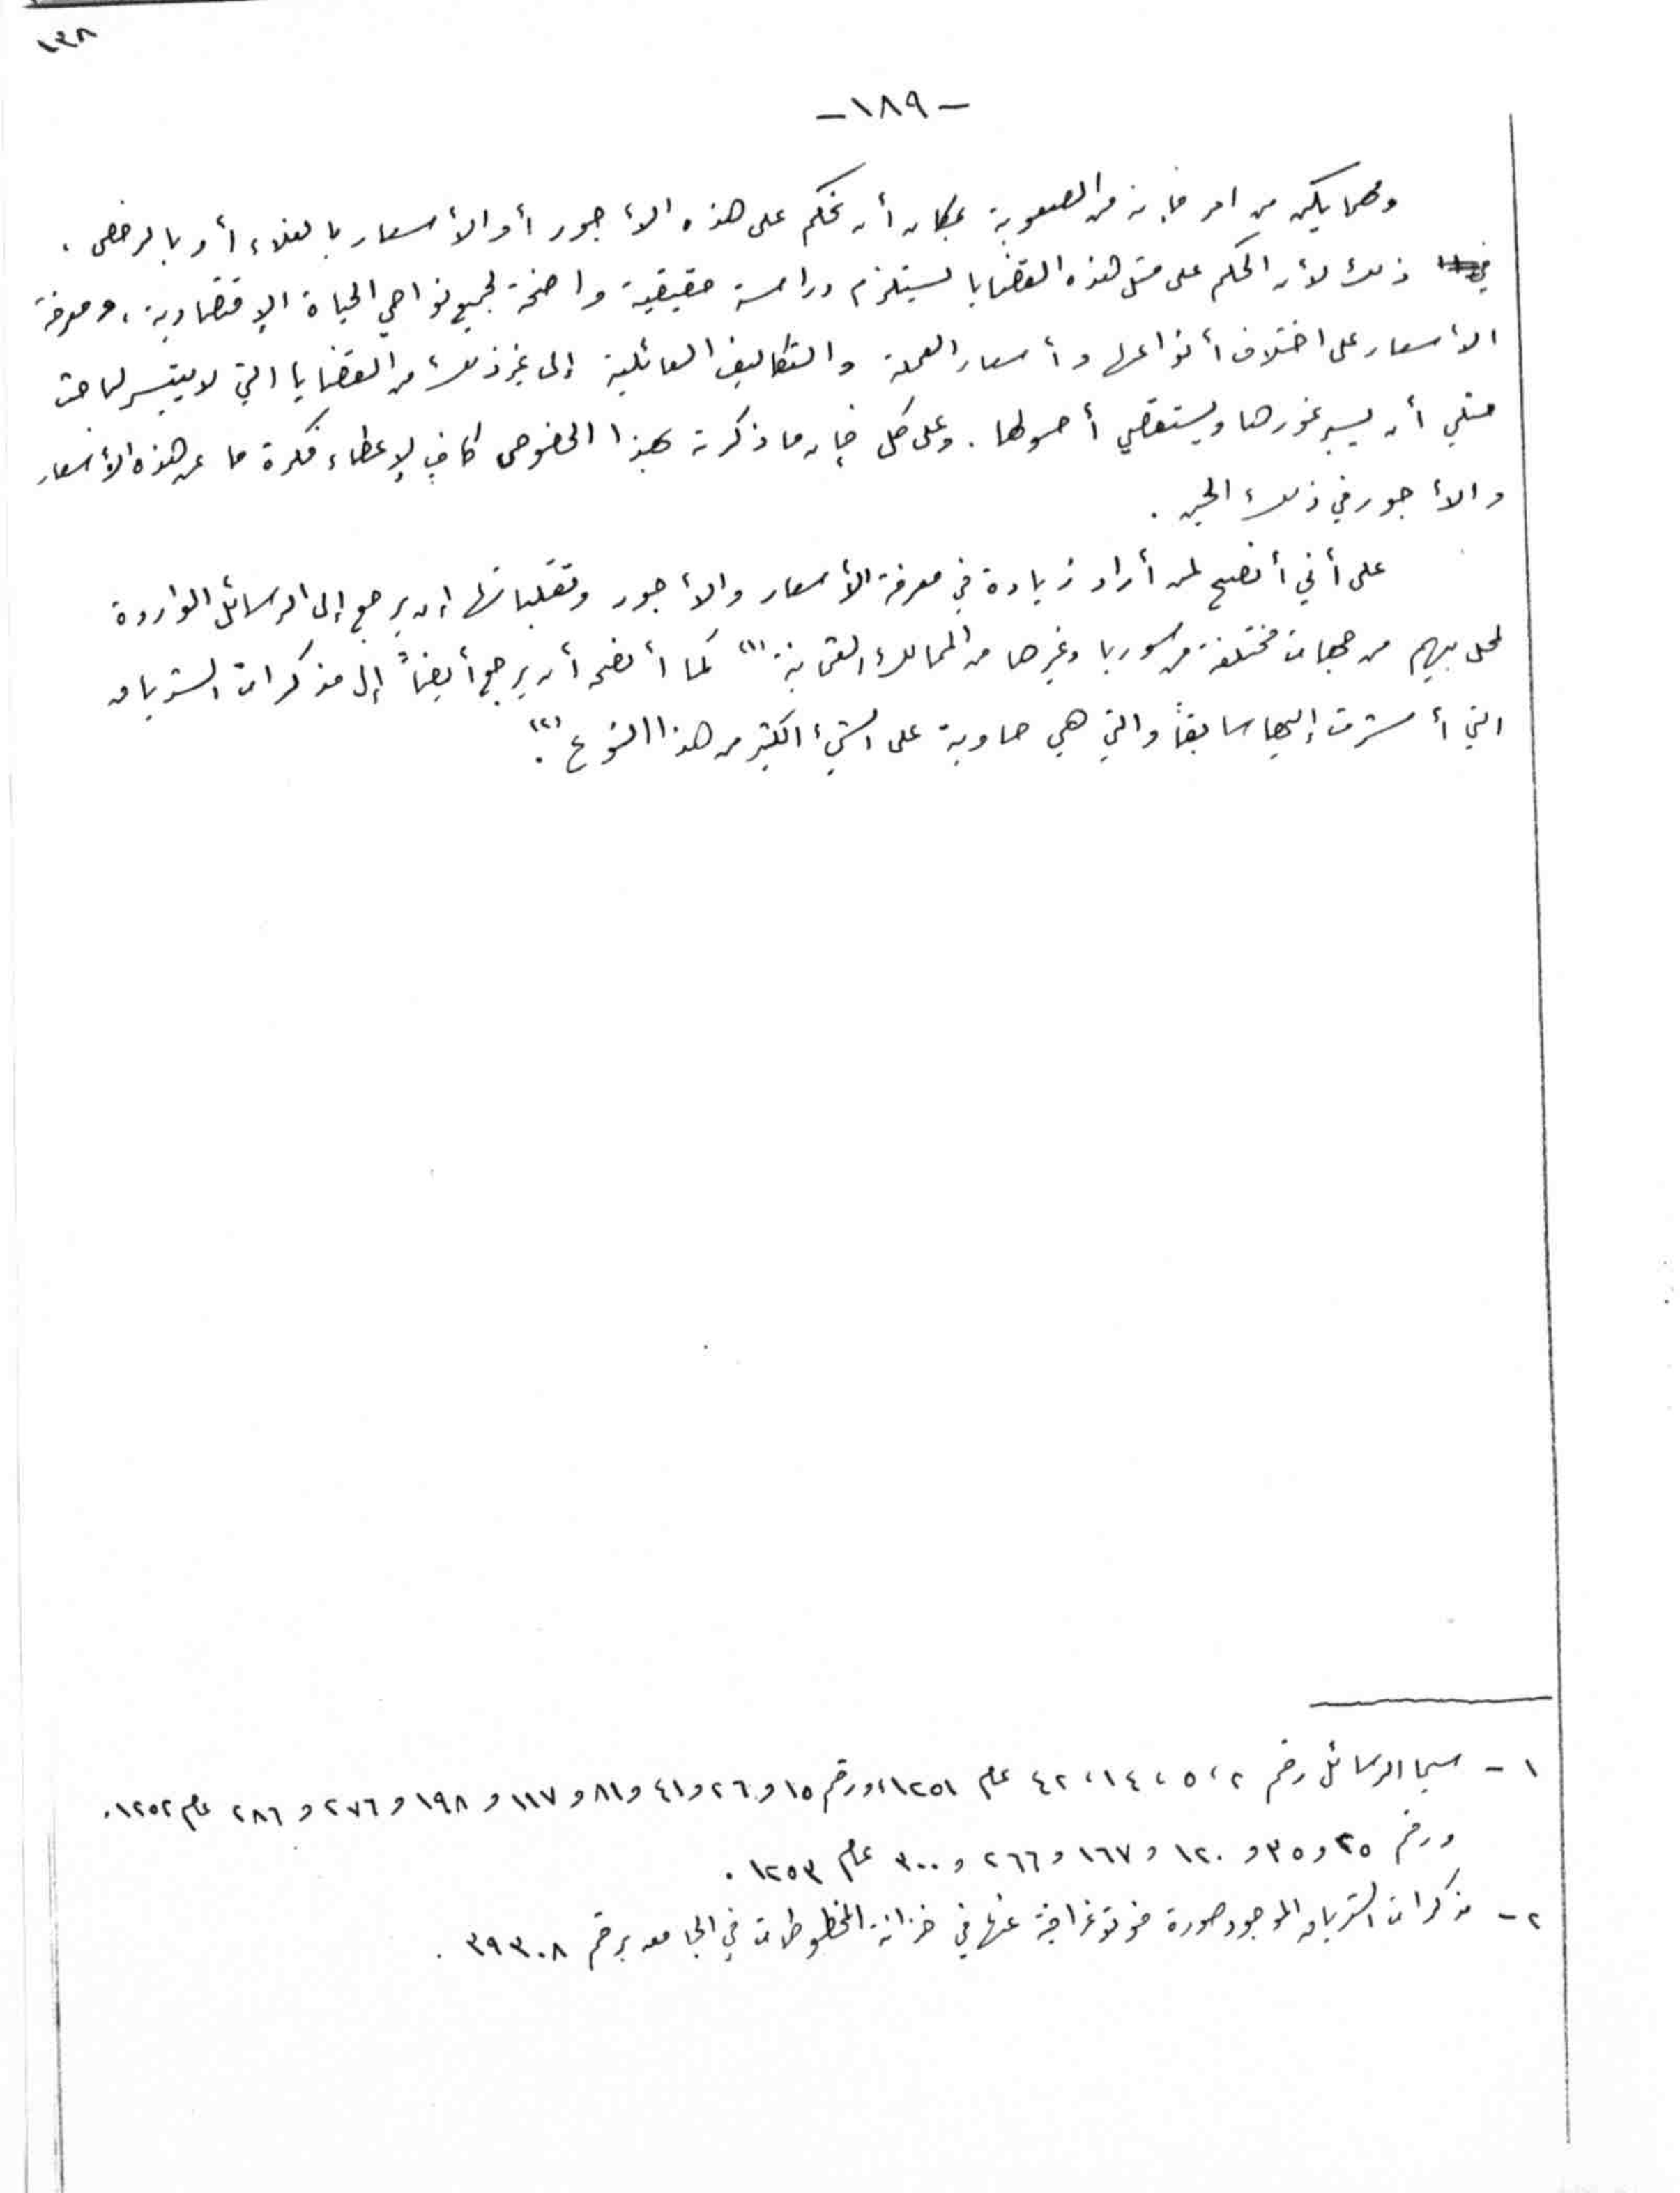 ١٣٨
-١٨٩-
ومهما يكن من امر فإنه من الصعوبة بمكان أن نحكم على هذه الأجور أو الأسعار بالغلاء أو بالرخص ،
ذلك لأن الحكم على مثل هذه القضايا يستلزم دراسة حقيقية واضحة لجميع نواحي الحياة الإقتصادية ، ومعرفة
الأسعار على اختلاف أنواعها وأسعار العملة والتكاليف العائلية إلى غير ذلك من القضايا التي لا يتيسر لباحث
مثلي أن يسبر غورها ويستقصي أصولها . وعلى كل فإن ما ذكرته بهذا الخصوص كافٍ لإعطاء فكرة ما عن هذه الأسعار
والأجور في ذلك الحين .
على أني أنصح لمن أراد زيادة في معرفة الأسعار والأجور وتقلباتها إن يرجع إلى الرسائل الواردة
لمحل بيهم من جهات مختلفة من سوريا وغيرها من الممالك العثمانية (١) كما أنصحه أن يرجع أيضاً إلى مذكرات الستربان
التي أشرت إليها سابقاً والتي هي حاوية على الشيء الكثير من هذا النوع (٢) .
١ - سيما الرسائل رقم ٢ ، ٥ ، ١٤ ، ٤٢ عام ١٢٥١ ، ورقم ١٥ و ٢٦ و ٤١ و ٨١ و ١١٧ و ١٩٨ و ٢٧٦ و ٢٨٦ عام ١٢٥٢ .
ورقم ٢٥ و ٣٥ و ١٢٠ و ١٦٧ و ٢٦٦ و ٣٠٠ عام ١٢٥٣ .
٢ - مذكرات الستربان الموجود صورة فوتوغرافية عنها في خزانة المخطوطات في الجامعه برقم ٣٩٣٠٨ .